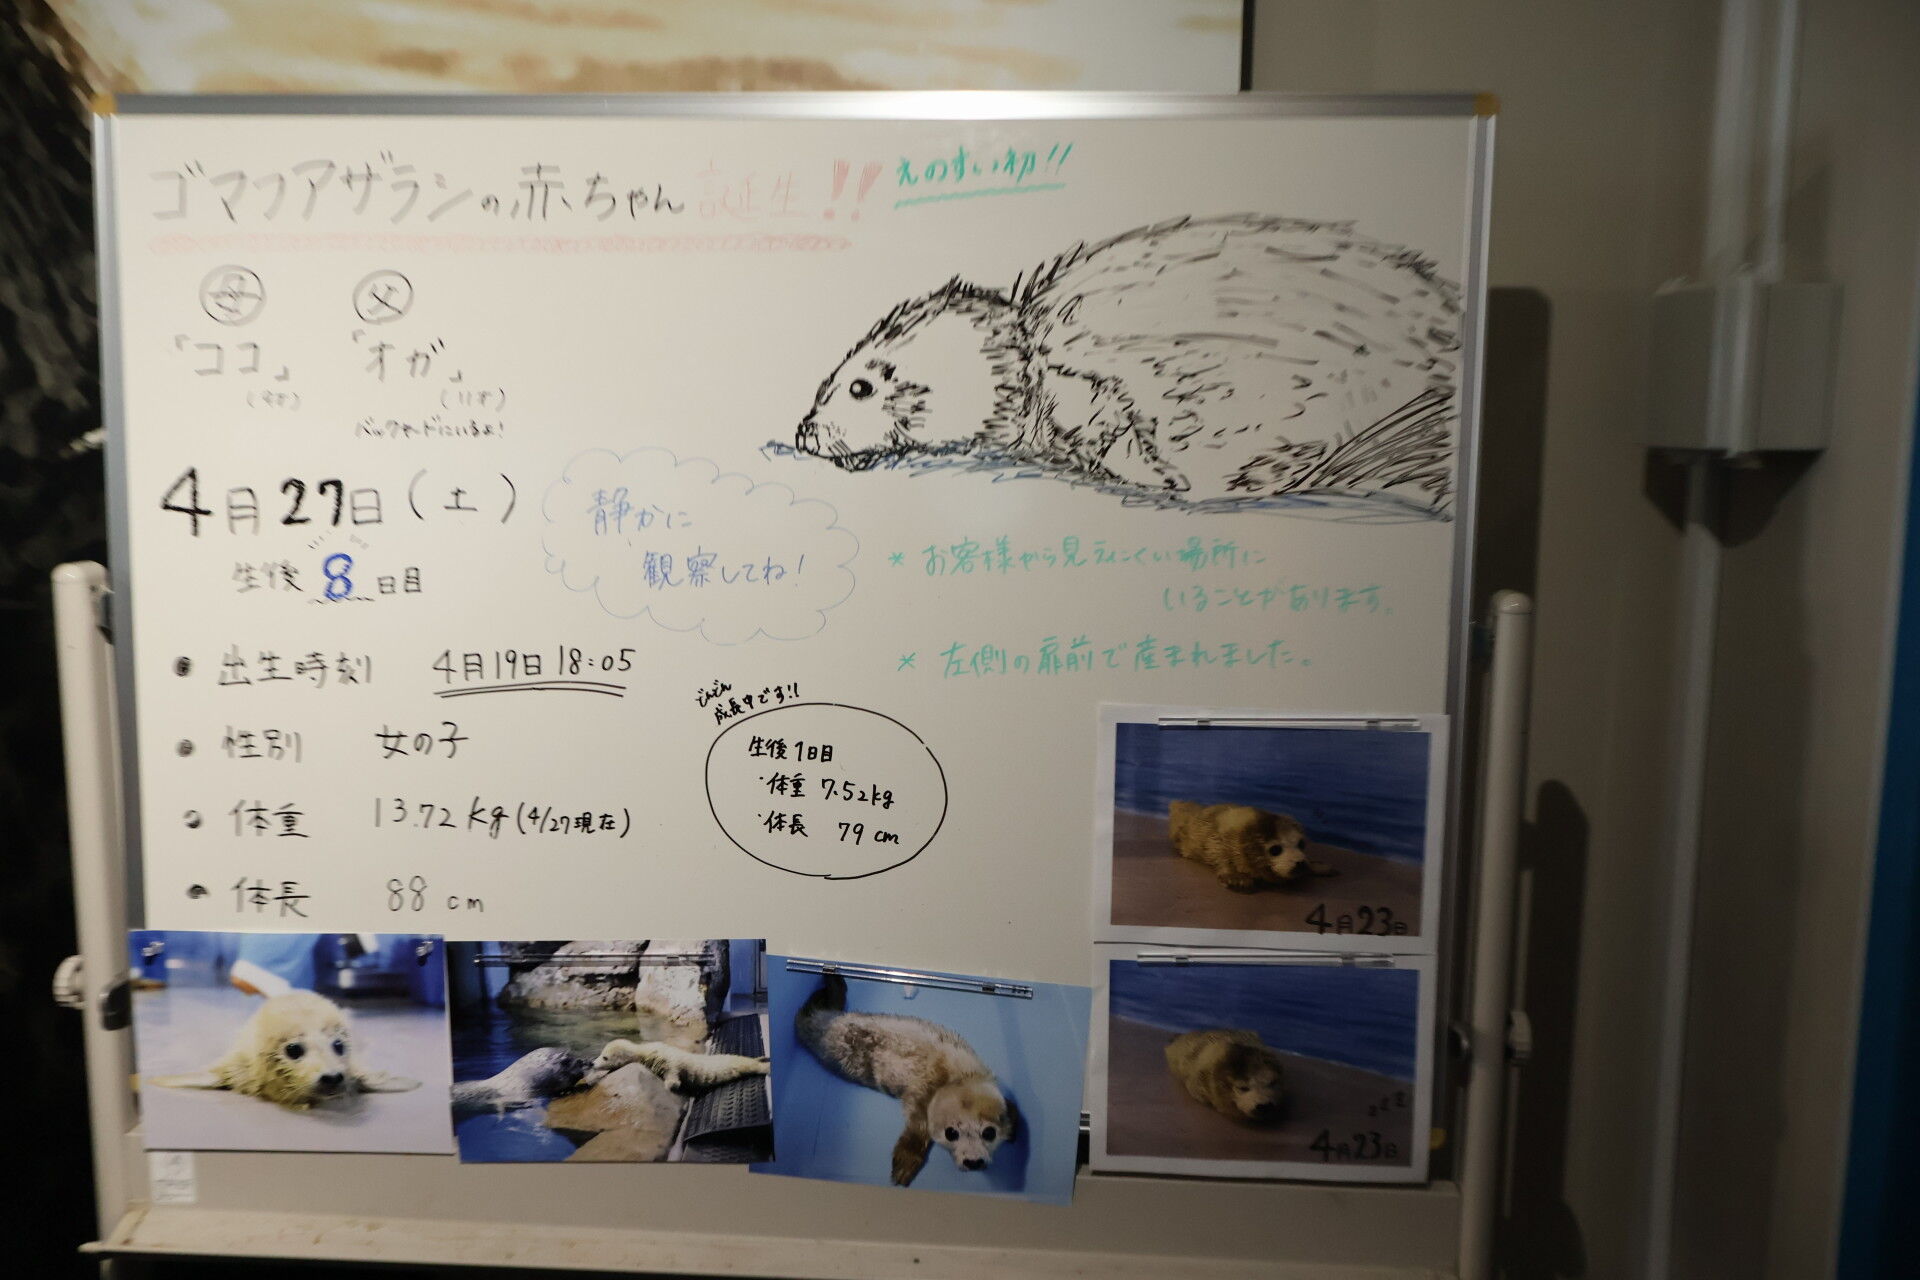 ゴマフアザラシの赤ちゃん誕生!!
えのすい初!!
母
父
「ココ」
「オガ」
(11才)
バックヤードにいるよ!
4月27日(土)
生後8日目
静かに
観察してね!
* お客様から見えにくい場所に
いることがあります。
* 左側の扉前で産まれました。
• 出生時刻 4月19日 18:05
• 性別 女の子
• 体重 13.72kg(4/27現在)
• 体長 88cm
どんどん
成長中です!!
生後1日目
・体重 7.52kg
・体長 79cm
4月23日
zzz
4月23日